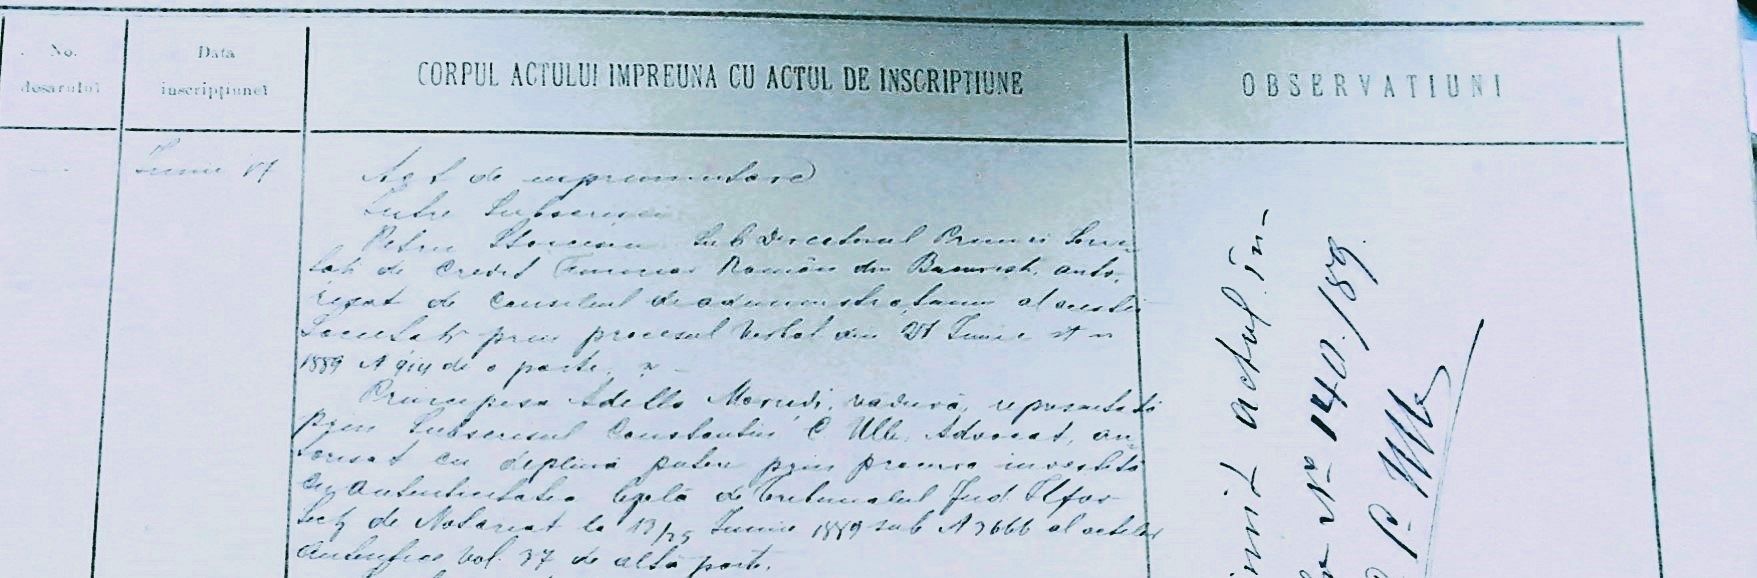 No.
dosarului
Data
inscripțiunei
CORPUL ACTULUI IMPREUNA CU ACTUL DE INSCRIPȚIUNE
OBSERVAȚIUNI
Iunie
Act de imprumutare
Intre Subscrisii
Petru Subdirectorul Primei Socie-
tăți de Credit Funciar Român din Bucuresti, auto-
risat de Consiliul de administrațiune al acestei
Societăți prin procesul verbal din Iunie st n
1889 de o parte, și
Principesa Adella Moruzi, vaduvă, represintată
prin Subscrisul Constantin C Advocat, au-
torisat cu deplină putere prin procura investită
cu autenticitatea legală de Tribunalul Jud. Ilfov
Secț de Notariat la 13/25 Iunie 1889 sub N 3666 al actelor
autentice vol. 37 de altă parte.
actul în-
No 140./89.